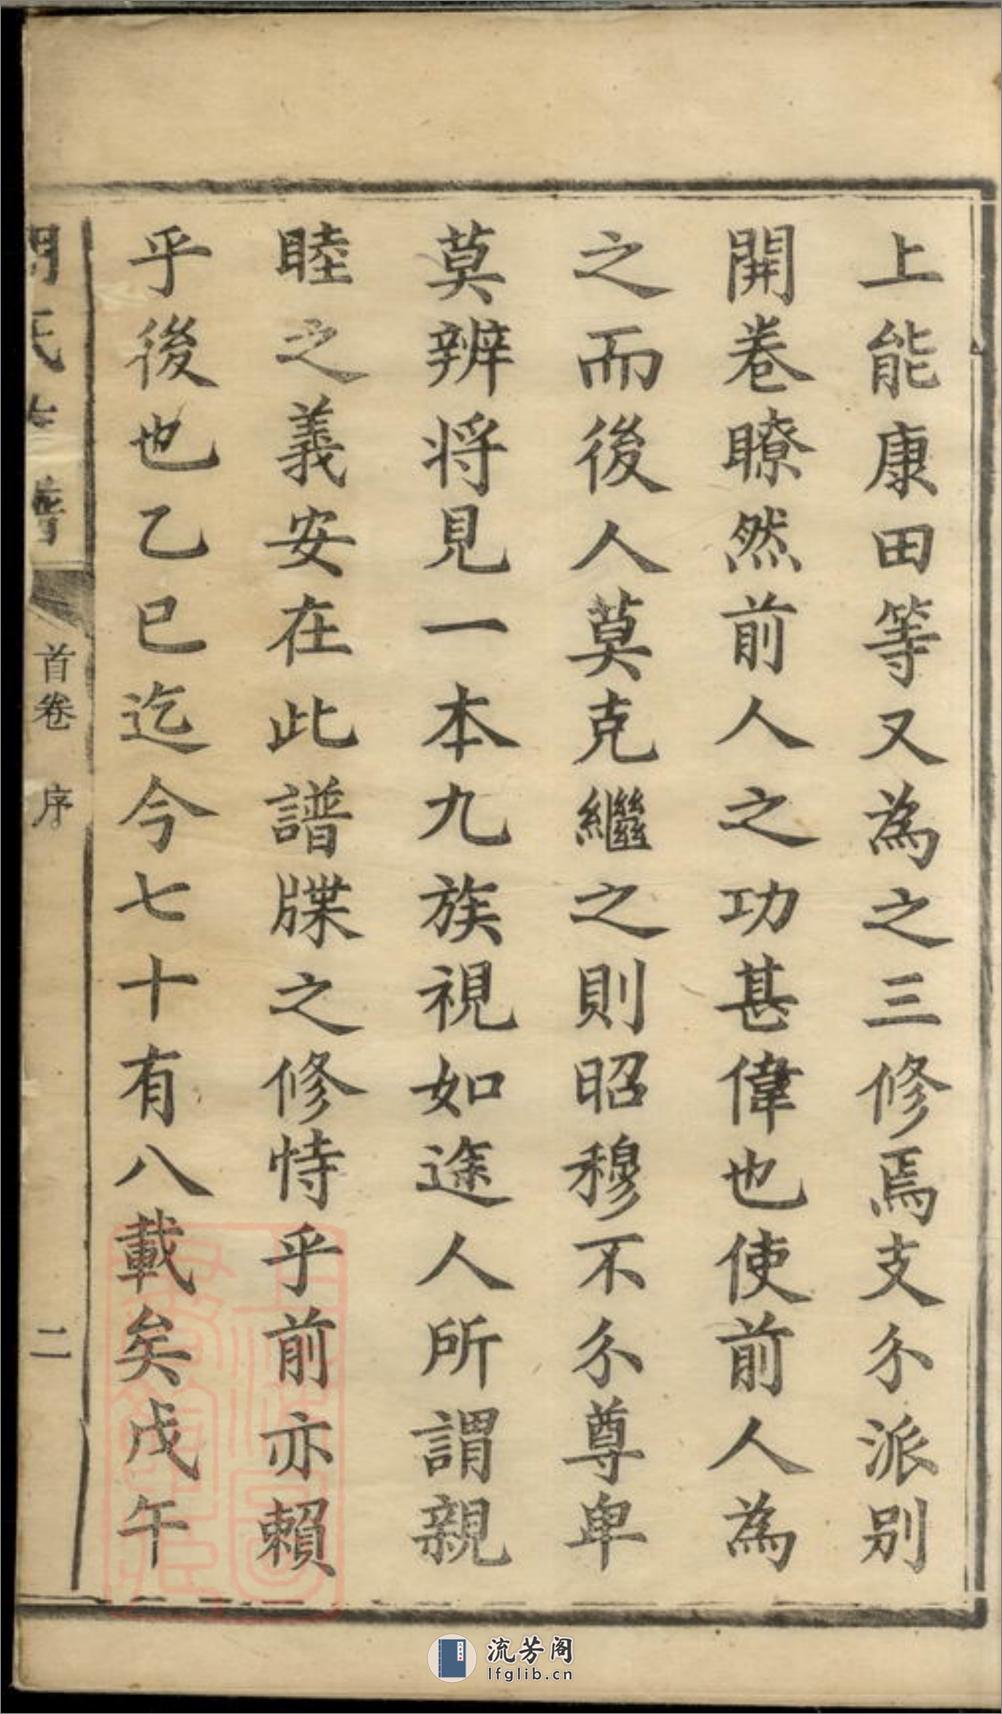 上能康田等又為之三修焉支分派別
開卷瞭然前人之功甚偉也使前人為
之而後人莫克繼之則昭穆不分尊卑
莫辨将見一本九族視如途人所謂親
睦之義安在此譜牒之修恃乎前亦賴
乎後也乙巳迄今七十有八載矣戊午
氏 譜
首卷 序
二
流芳阁
lfglib.cn